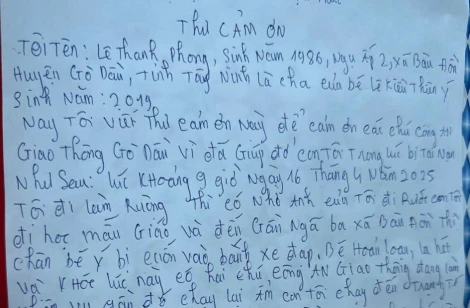 Thư CẢM ƠN
TÔI TÊN: Lê Thanh Phong, Sinh Năm 1986, Ngụ Ấp 2, xã Bàu Đồn
Huyện Gò Dầu, Tỉnh Tây Ninh Là cha của bé Lê Kiều Thiên Ý
Sinh Năm: 2019
Nay Tôi viết Thư cảm ơn Này để cảm ơn các chú công AN
Giao Thông Gò Dầu vì đã Giúp đỡ con Tôi Trong lúc bị Tai Nạn
Như Sau: lúc Khoảng 9 giờ Ngày 16 Tháng 4 Năm 2025
Tôi đi làm Ruộng Thì có Nhờ Anh của Tôi đi Rước con Tôi
đi học mẫu Giáo và đến Gần Ngã ba xã Bàu Đồn Thì
chân bé Ý bị cuốn vào bánh xe đạp. Bé Hoản Loạn, la hét
và Khóc lúc này có hai chú công AN Giao Thông đang làm
gần đó chạy lại ẳm con Tôi chạy đến